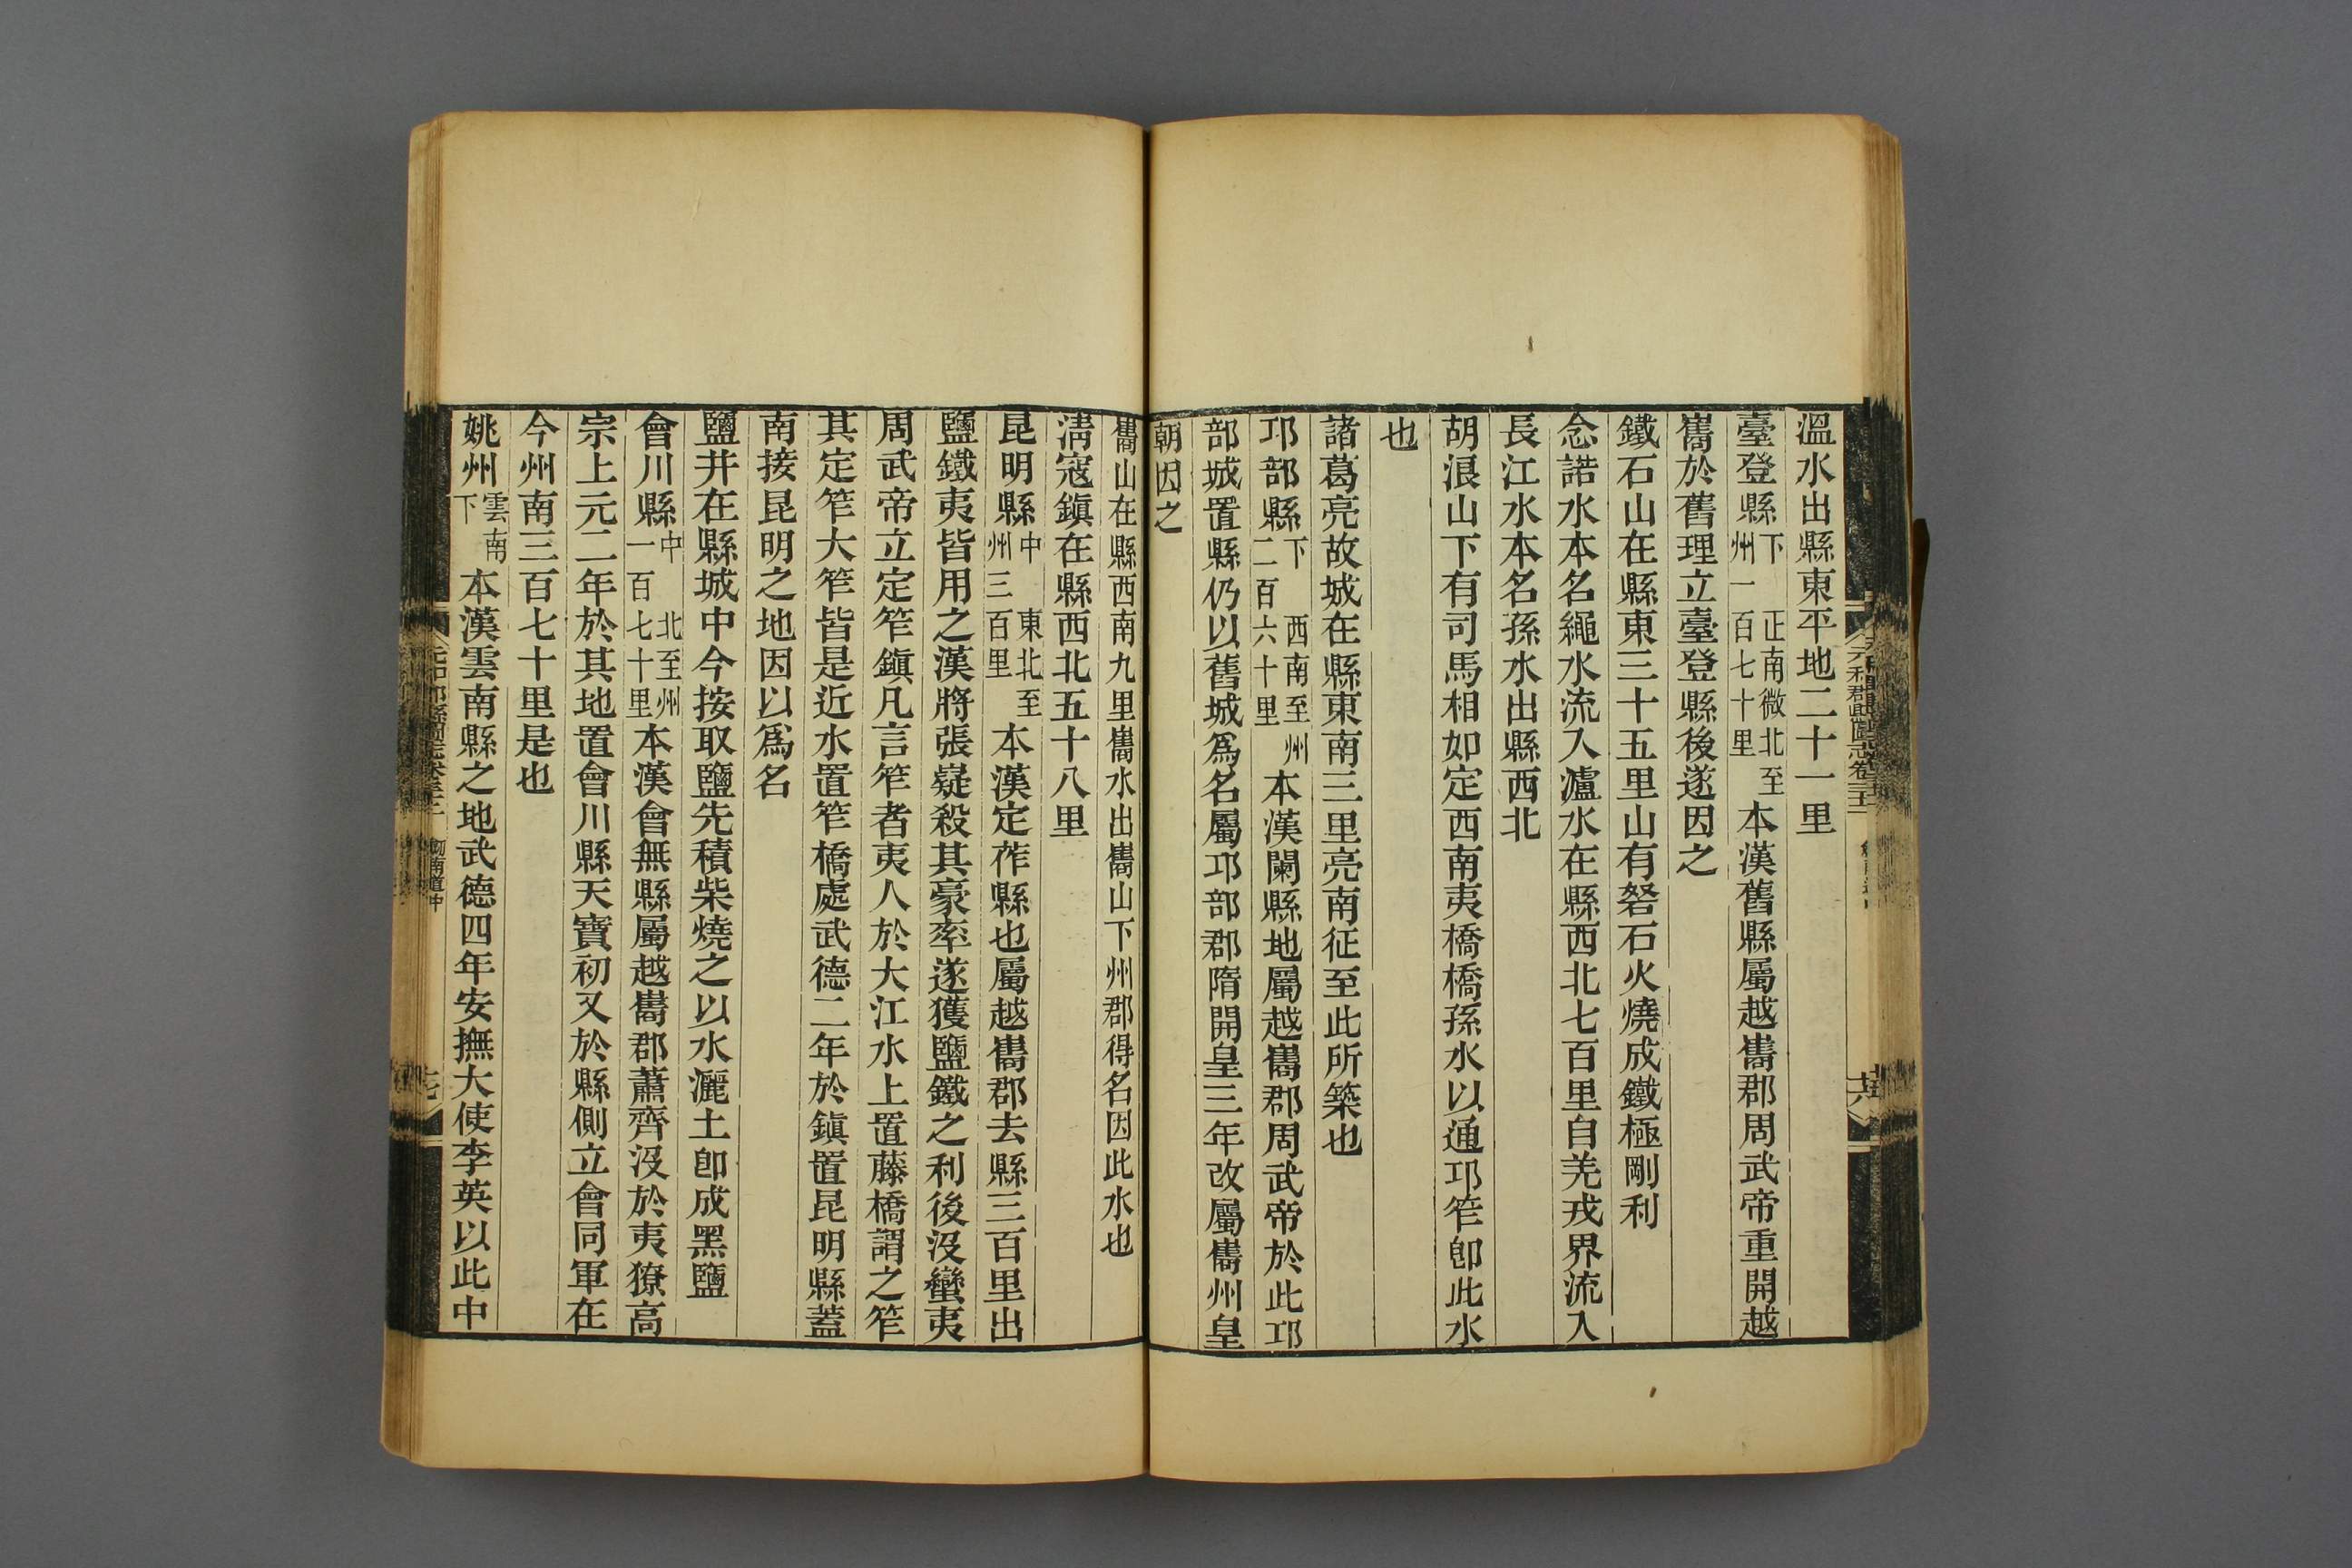 溫水出縣東平地二十一里
臺登縣下 正南微北至州一百七十里 本漢舊縣屬越巂郡周武帝重開越
巂於舊理立臺登縣後遂因之
鐵石山在縣東三十五里山有砮石火燒成鐵極剛利
念諾水本名繩水流入瀘水在縣西北七百里自羌戎界流入
長江水本名孫水出縣西北
胡浪山下有司馬相如定西南夷橋橋孫水以通邛笮卽此水
也
諸葛亮故城在縣東南三里亮南征至此所築也
邛部縣下 西南至州二百六十里 本漢闌縣地屬越巂郡周武帝於此邛
部城置縣仍以舊城爲名屬邛部郡隋開皇三年改屬巂州皇
朝因之
巂山在縣西南九里巂水出巂山下州郡得名因此水也
淸寇鎭在縣西北五十八里
昆明縣中 東北至州三百里 本漢定莋縣也屬越巂郡去縣三百里出
鹽鐵夷皆用之漢將張嶷殺其豪率遂獲鹽鐵之利後沒蠻夷
周武帝立定笮鎭凡言笮者夷人於大江水上置藤橋謂之笮
其定笮大笮皆是近水置笮橋處武德二年於鎭置昆明縣蓋
南接昆明之地因以爲名
鹽井在縣城中今按取鹽先積柴燒之以水灑土卽成黑鹽
會川縣中 北至州一百七十里 本漢會無縣屬越巂郡蕭齊沒於夷獠高
宗上元二年於其地置會川縣天寶初又於縣側立會同軍在
今州南三百七十里是也
姚州雲南下 本漢雲南縣之地武德四年安撫大使李英以此中